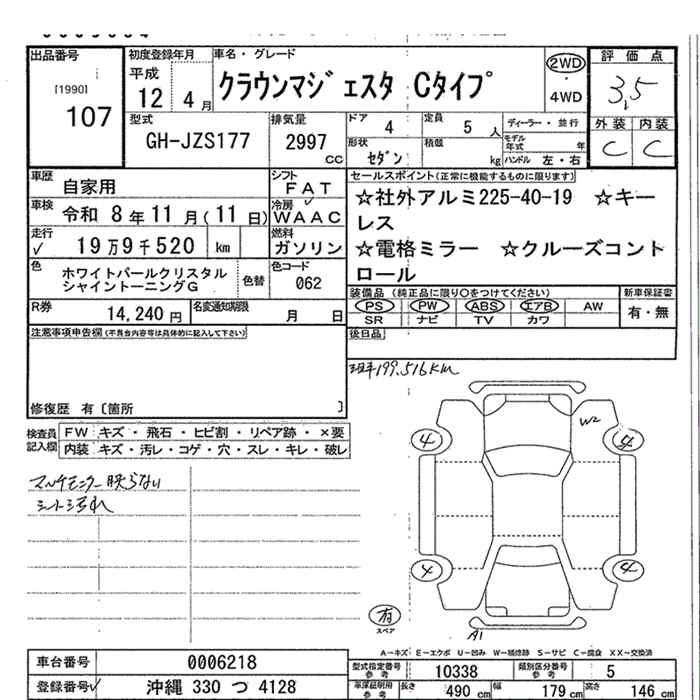 出品番号
[1990]
107
初度登録年月
平成
12 4月
車名・グレード
クラウンマジェスタ Cタイプ
2WD
・
4WD
評価点
3.5
外装 内装
C C
型式
GH-JZS177
排気量
2997
cc
ドア 4
定員 5 人
ディーラー・並行
モデル年式 年
形状 セダン
積載 kg
ハンドル 左・右
車歴 自家用
シフト FAT
車検 令和 8年11月(11日)
冷房 WAAC
走行 19万9千520 km
燃料 ガソリン
色 ホワイトパールクリスタル
シャイントーニングG
色替
色コード 062
R券 14,240円
名変通知期限 月 日
セールスポイント(正常に機能するものに限ります)
☆社外アルミ225-40-19 ☆キー
レス
☆電格ミラー ☆クルーズコント
ロール
装備品(純正品に限り○をつけてください)
PS PW ABS エアB AW
SR ナビ TV カワ
新車保証書
有・無
後日品
注意事項申告欄(不具合内容等は具体的に記入して下さい)
修復歴 有〔箇所 〕
199,516km
検査員
記入欄
FW キズ・飛石・ヒビ割・リペア跡・×要
内装 キズ・汚レ・コゲ・穴・スレ・キレ・破レ
マルチモニター映らない
シート汚れ
W2
4
4
4
4
有
スペア
A1
A-キズ E-エクボ U-凹み W-補修跡 S-サビ C-腐食 XX-交換済
車台番号 0006218
登録番号 沖縄 330 つ 4128
型式指定番号
参考
10338
類別区分番号
参考
5
車庫証明用
参考
長さ 490 cm
幅 179 cm
高さ 146 cm